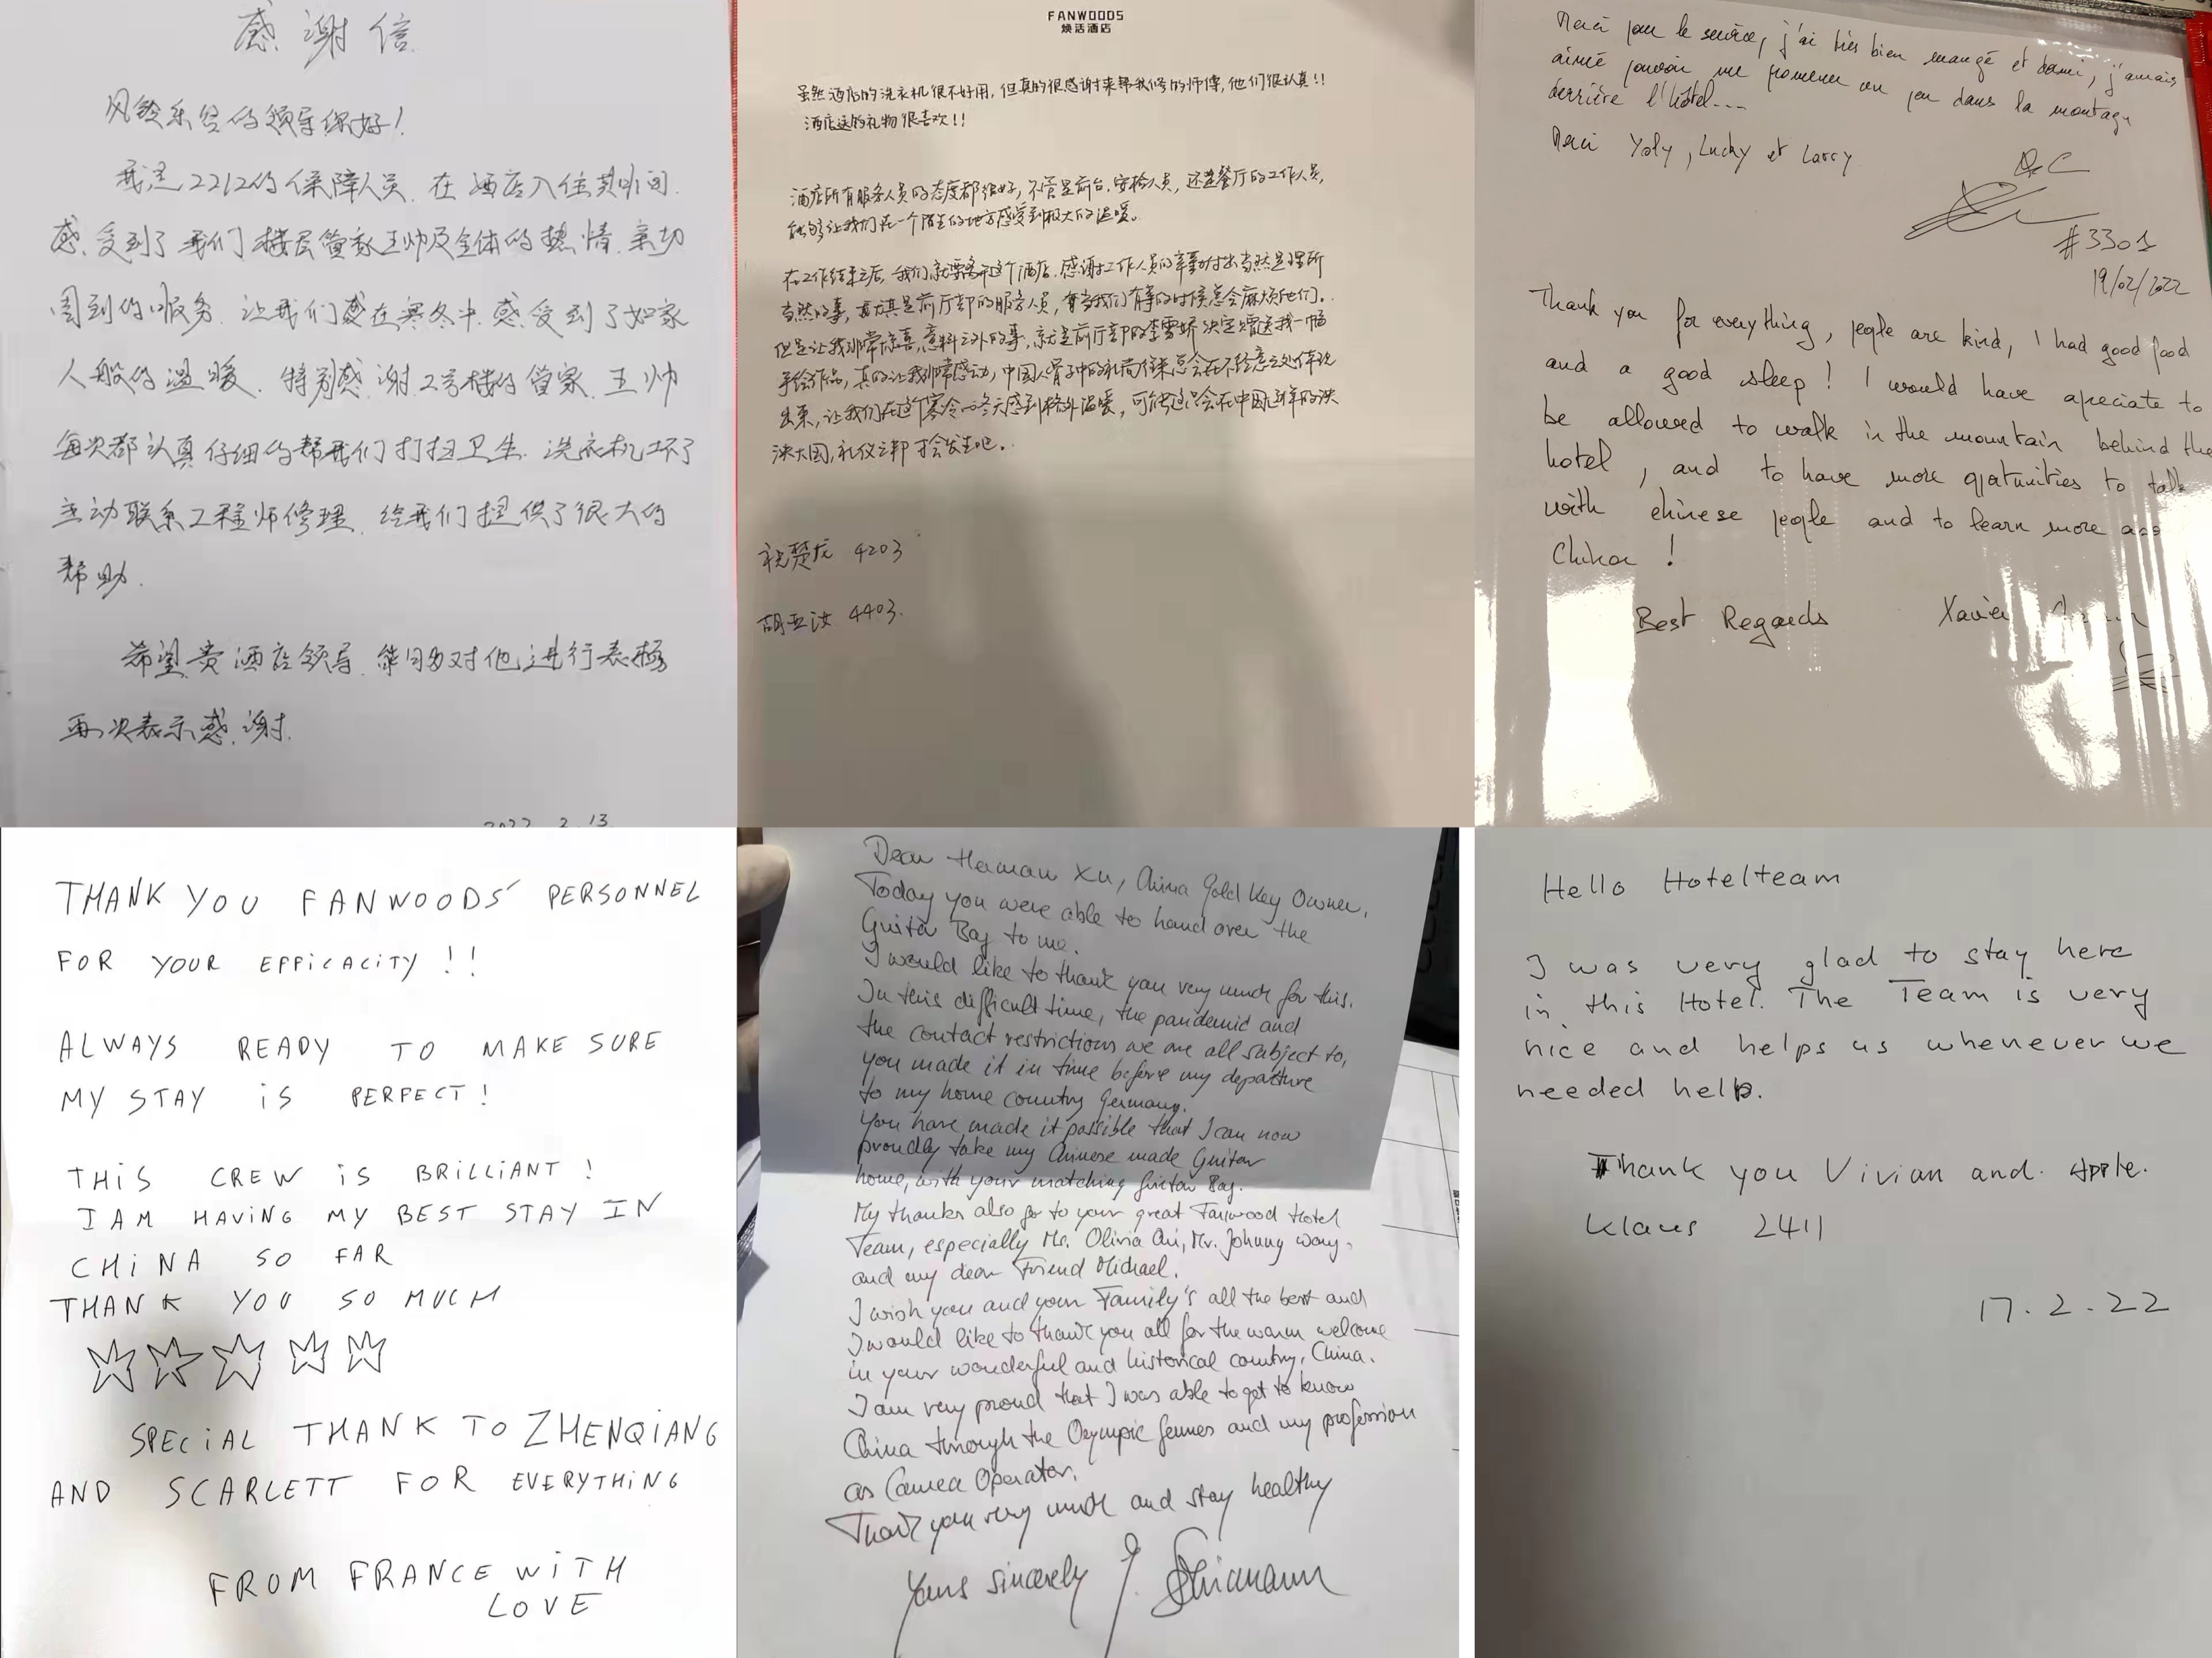 感谢信
风铃乐谷的领导你好!
我是2212的保障人员.在酒店入住期间.
感受到了我们楼层管家王帅及全体的热情.亲切
周到的服务.让我们感在寒冬中.感受到了如家
人般的温暖.特别感谢2号楼的管家.王帅
每次都认真仔细的帮我们打扫卫生.洗衣机坏了
主动联系工程师修理.给我们提供了很大的
帮助.
希望贵酒店领导.能够对他进行表扬
再次表示感谢.
2022.2.13
FANWOODS
焕活酒店
虽然酒店的洗衣机很不好用,但真的很感谢来帮我修的师傅,他们很认真!!
酒店送的礼物很喜欢!!
酒店所有服务人员的态度都很好,不管是前台,安检人员,还是餐厅的工作人员,
能够让我们在一个陌生的地方感受到极大的温暖。
在工作结束之后,我们就要离开这个酒店.感谢工作人员的辛勤付出当然是理所
当然的事,尤其是前厅部的服务人员,每当我们有事的时候总会麻烦他们。
但是让我非常惊喜,意料之外的事,就是前厅部的李雪娇决定赠送我一幅
手绘作品,真的让我非常感动,中国人骨子中的礼尚往来总会在不经意之处体现
出来,让我们在这个寒冷的冬天感到格外温暖,可能这只会在中国这样的泱
泱大国,礼仪之邦才会发生吧。
祝楚龙 4203
胡亚汝 4403.
Merci pour le service, j'ai très bien mangé et dormi, j'aurais
aimé pouvoir me promener un peu dans la montagne
derrière l'hôtel...
Merci Yoly, Lucky et Larry
#3301
19/02/2022
Thank you for everything, people are kind, I had good food
and a good sleep! I would have apreciate to
be allowed to walk in the mountain behind the
hotel, and to have more opportunities to talk
with chinese people and to learn more
China!
Best Regards Xavier
THANK YOU FANWOODS' PERSONNEL
FOR YOUR EFFICACITY!!
ALWAYS READY TO MAKE SURE
MY STAY iS PERFECT!
THiS CREW iS BRiLLiANT!
I AM HAViNG MY BEST STAY IN
CHiNA SO FAR
THANK YOU SO MUCH
SPECiAL THANK TO ZHENQiANG
AND SCARLETT FOR EVERYTHiNG
FROM FRANCE WiTH
LOVE
Dear Herman Xu, China Gold Key Owner,
Today you were able to hand over the
Guitar Bag to me.
I would like to thank you very much for this.
In this difficult time, the pandemic and
the contact restrictions we are all subject to,
you made it in time before my departure
to my home country Germany.
You have made it possible that I can now
proudly take my Chinese made Guitar
home, with your matching Guitar Bag.
My thanks also go to your great Fanwood Hotel
Team, especially Ms. Olivia Qi, Mr. Johnny Wang,
and my dear Friend Michael.
I wish you and your Family's all the best and
I would like to thank you all for the warm welcome
in your wonderful and historical country, China.
I am very proud that I was able to get to know
China through the Olympic Games and my profession
as Camera Operator.
Thank you very much and stay healthy
Yours sincerely
Hello Hotelteam
I was very glad to stay here
in this Hotel. The Team is very
nice and helps us whenever we
needed help.
Thank you Vivian and. Apple.
Klaus 2411
17.2.22